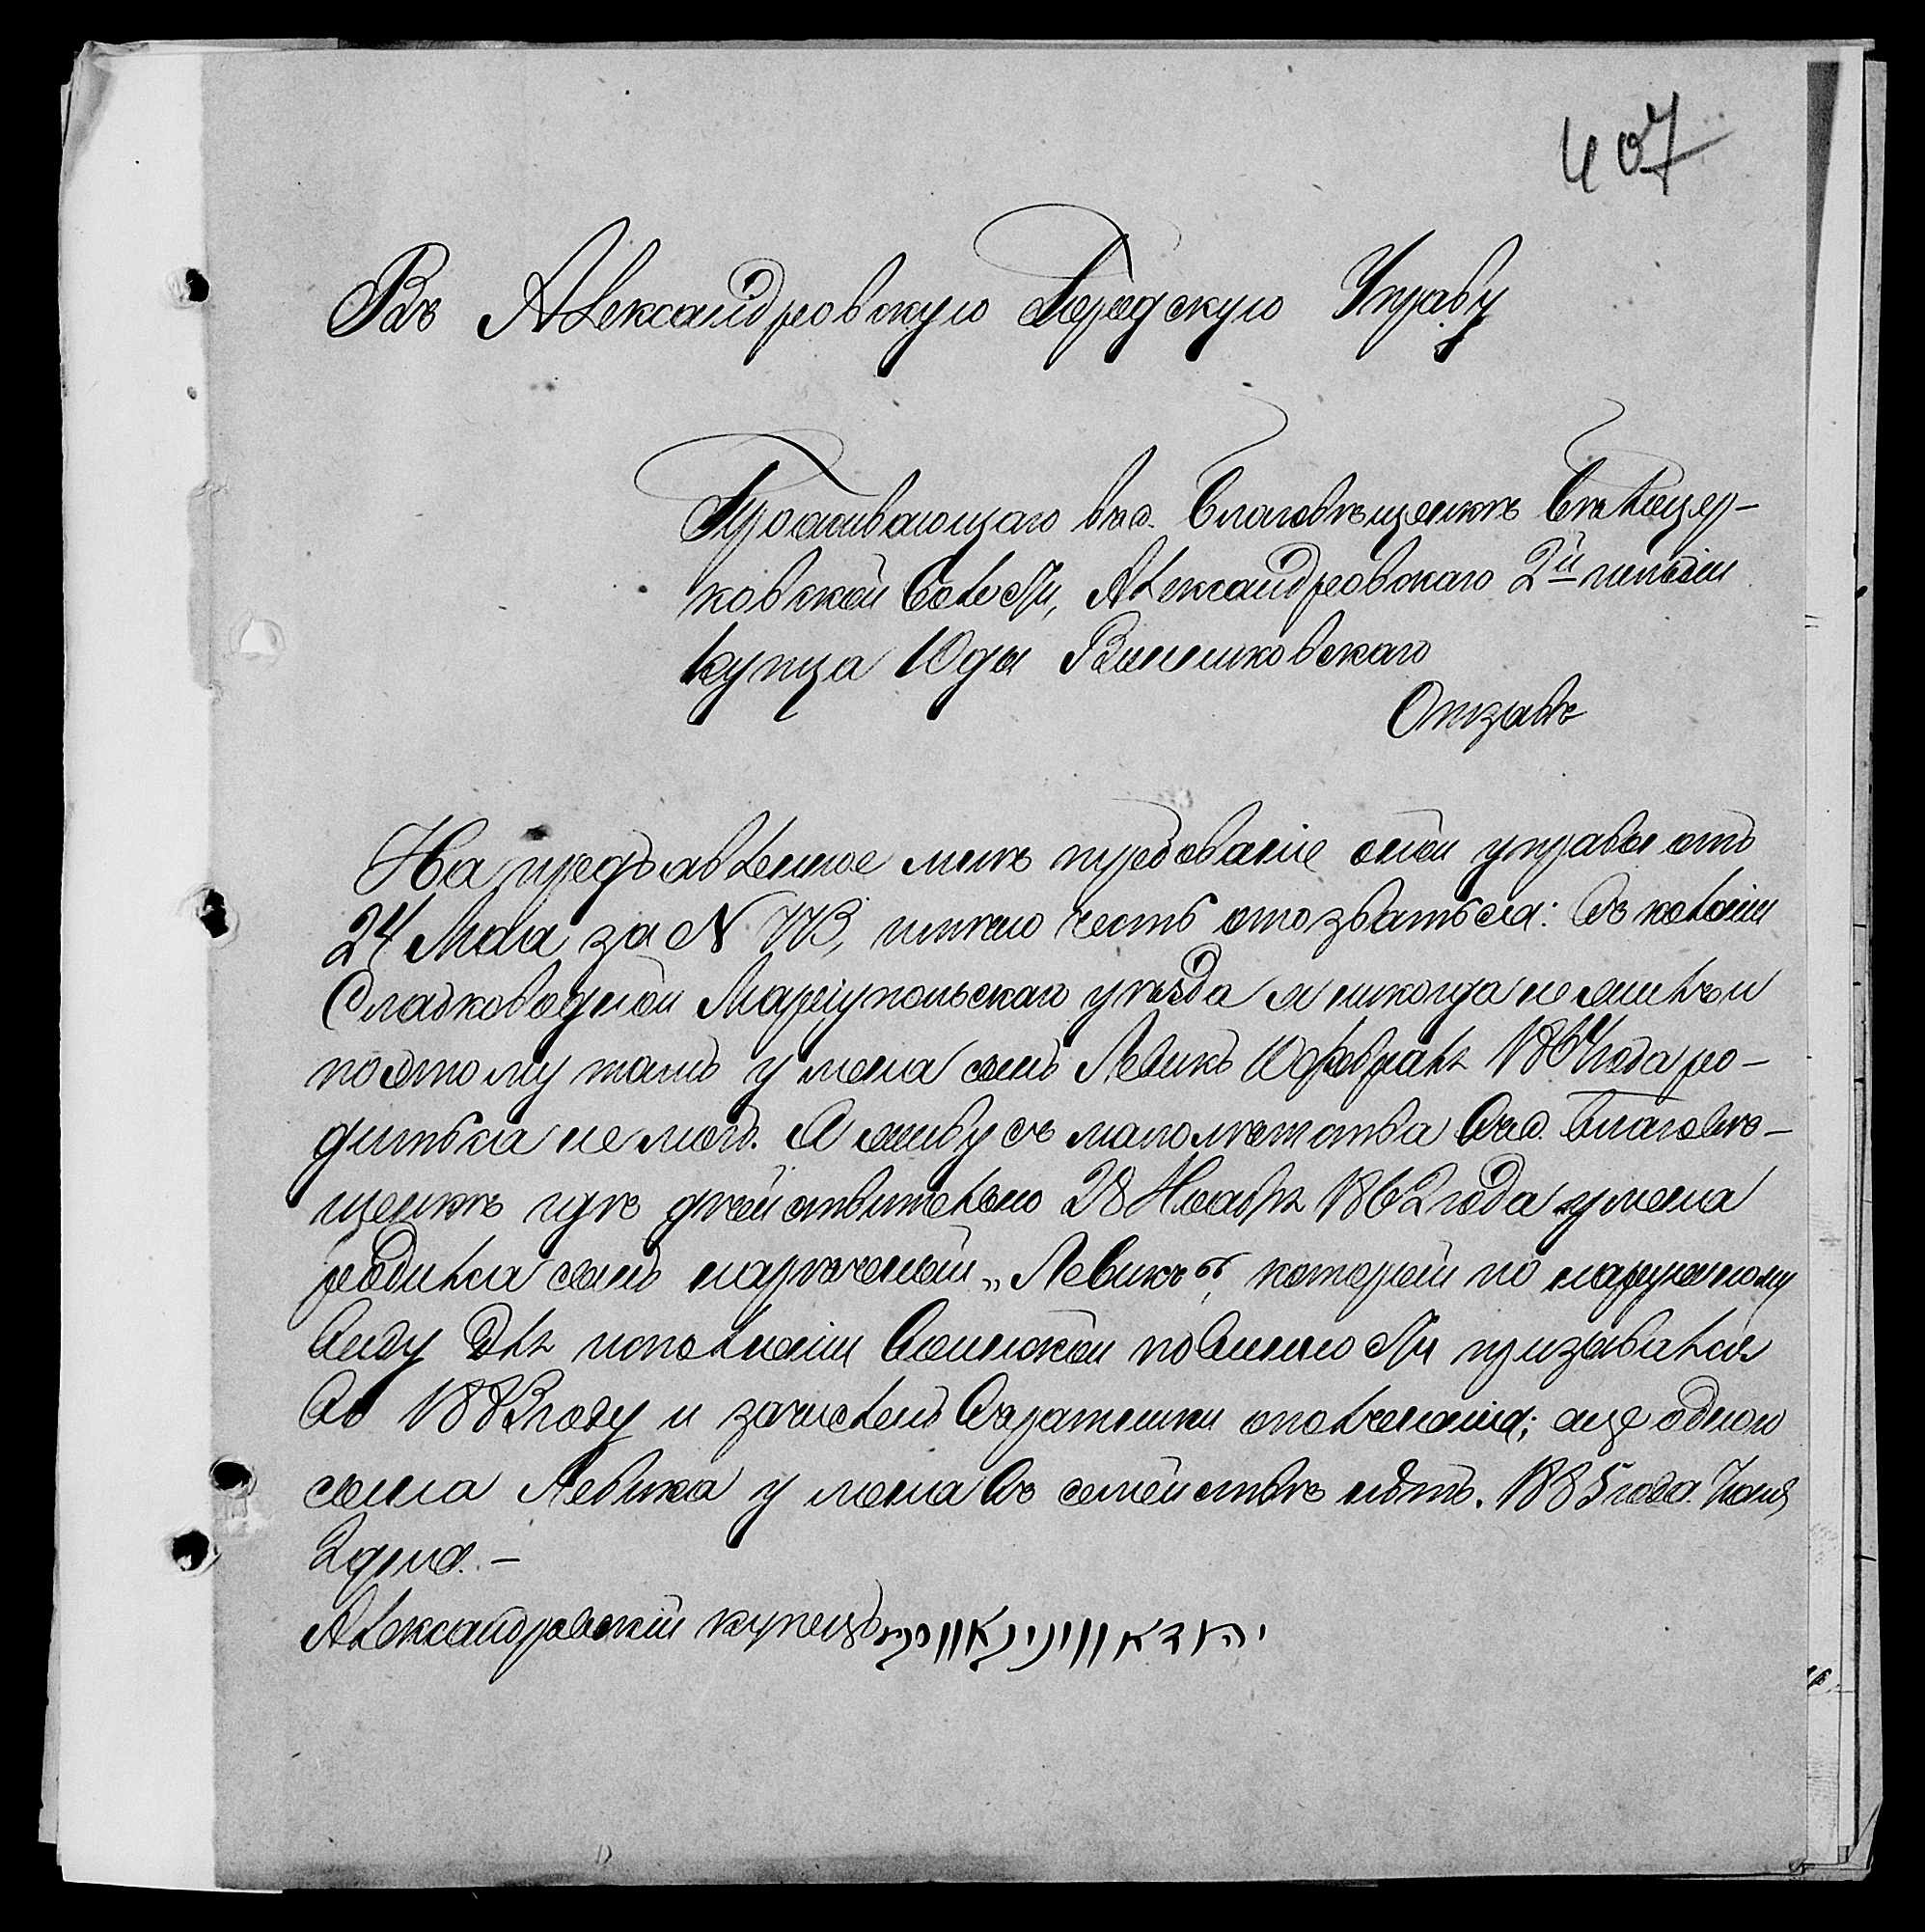 407
Въ Александровскую Городскую Управу
Проживающаго въ с. Благовѣщенкѣ Бѣлоцер-
ковской волости, Александровскаго 2й гильдіи
купца Юды Винниковскаго
Отзывъ
На предъявленное мнѣ требованіе оной управы отъ
24 Мая за №, имѣю честь отозваться: Въ колоніи
Сладководной Маріупольскаго уѣзда я никогда не жилъ и
поэтому тамъ у меня сынъ Левикъ 10 февраля 1864 года ро-
диться не могъ. А живу съ малолѣтства въ с. Благовѣ-
щенкѣ гдѣ дѣйствительно 28 Ноября 1862 года у меня
родился сынъ нареченный „Левикъ“, который по наружному
виду для исполненія воинской повинности призывался
въ 1883 году и зачисленъ въ ратники ополченія; еще одного
сына Левика у меня въ семействѣ нѣтъ. 1885 года Іюня
2 дня. –
Александровскій купецъ יהודא וויניקאווסקי